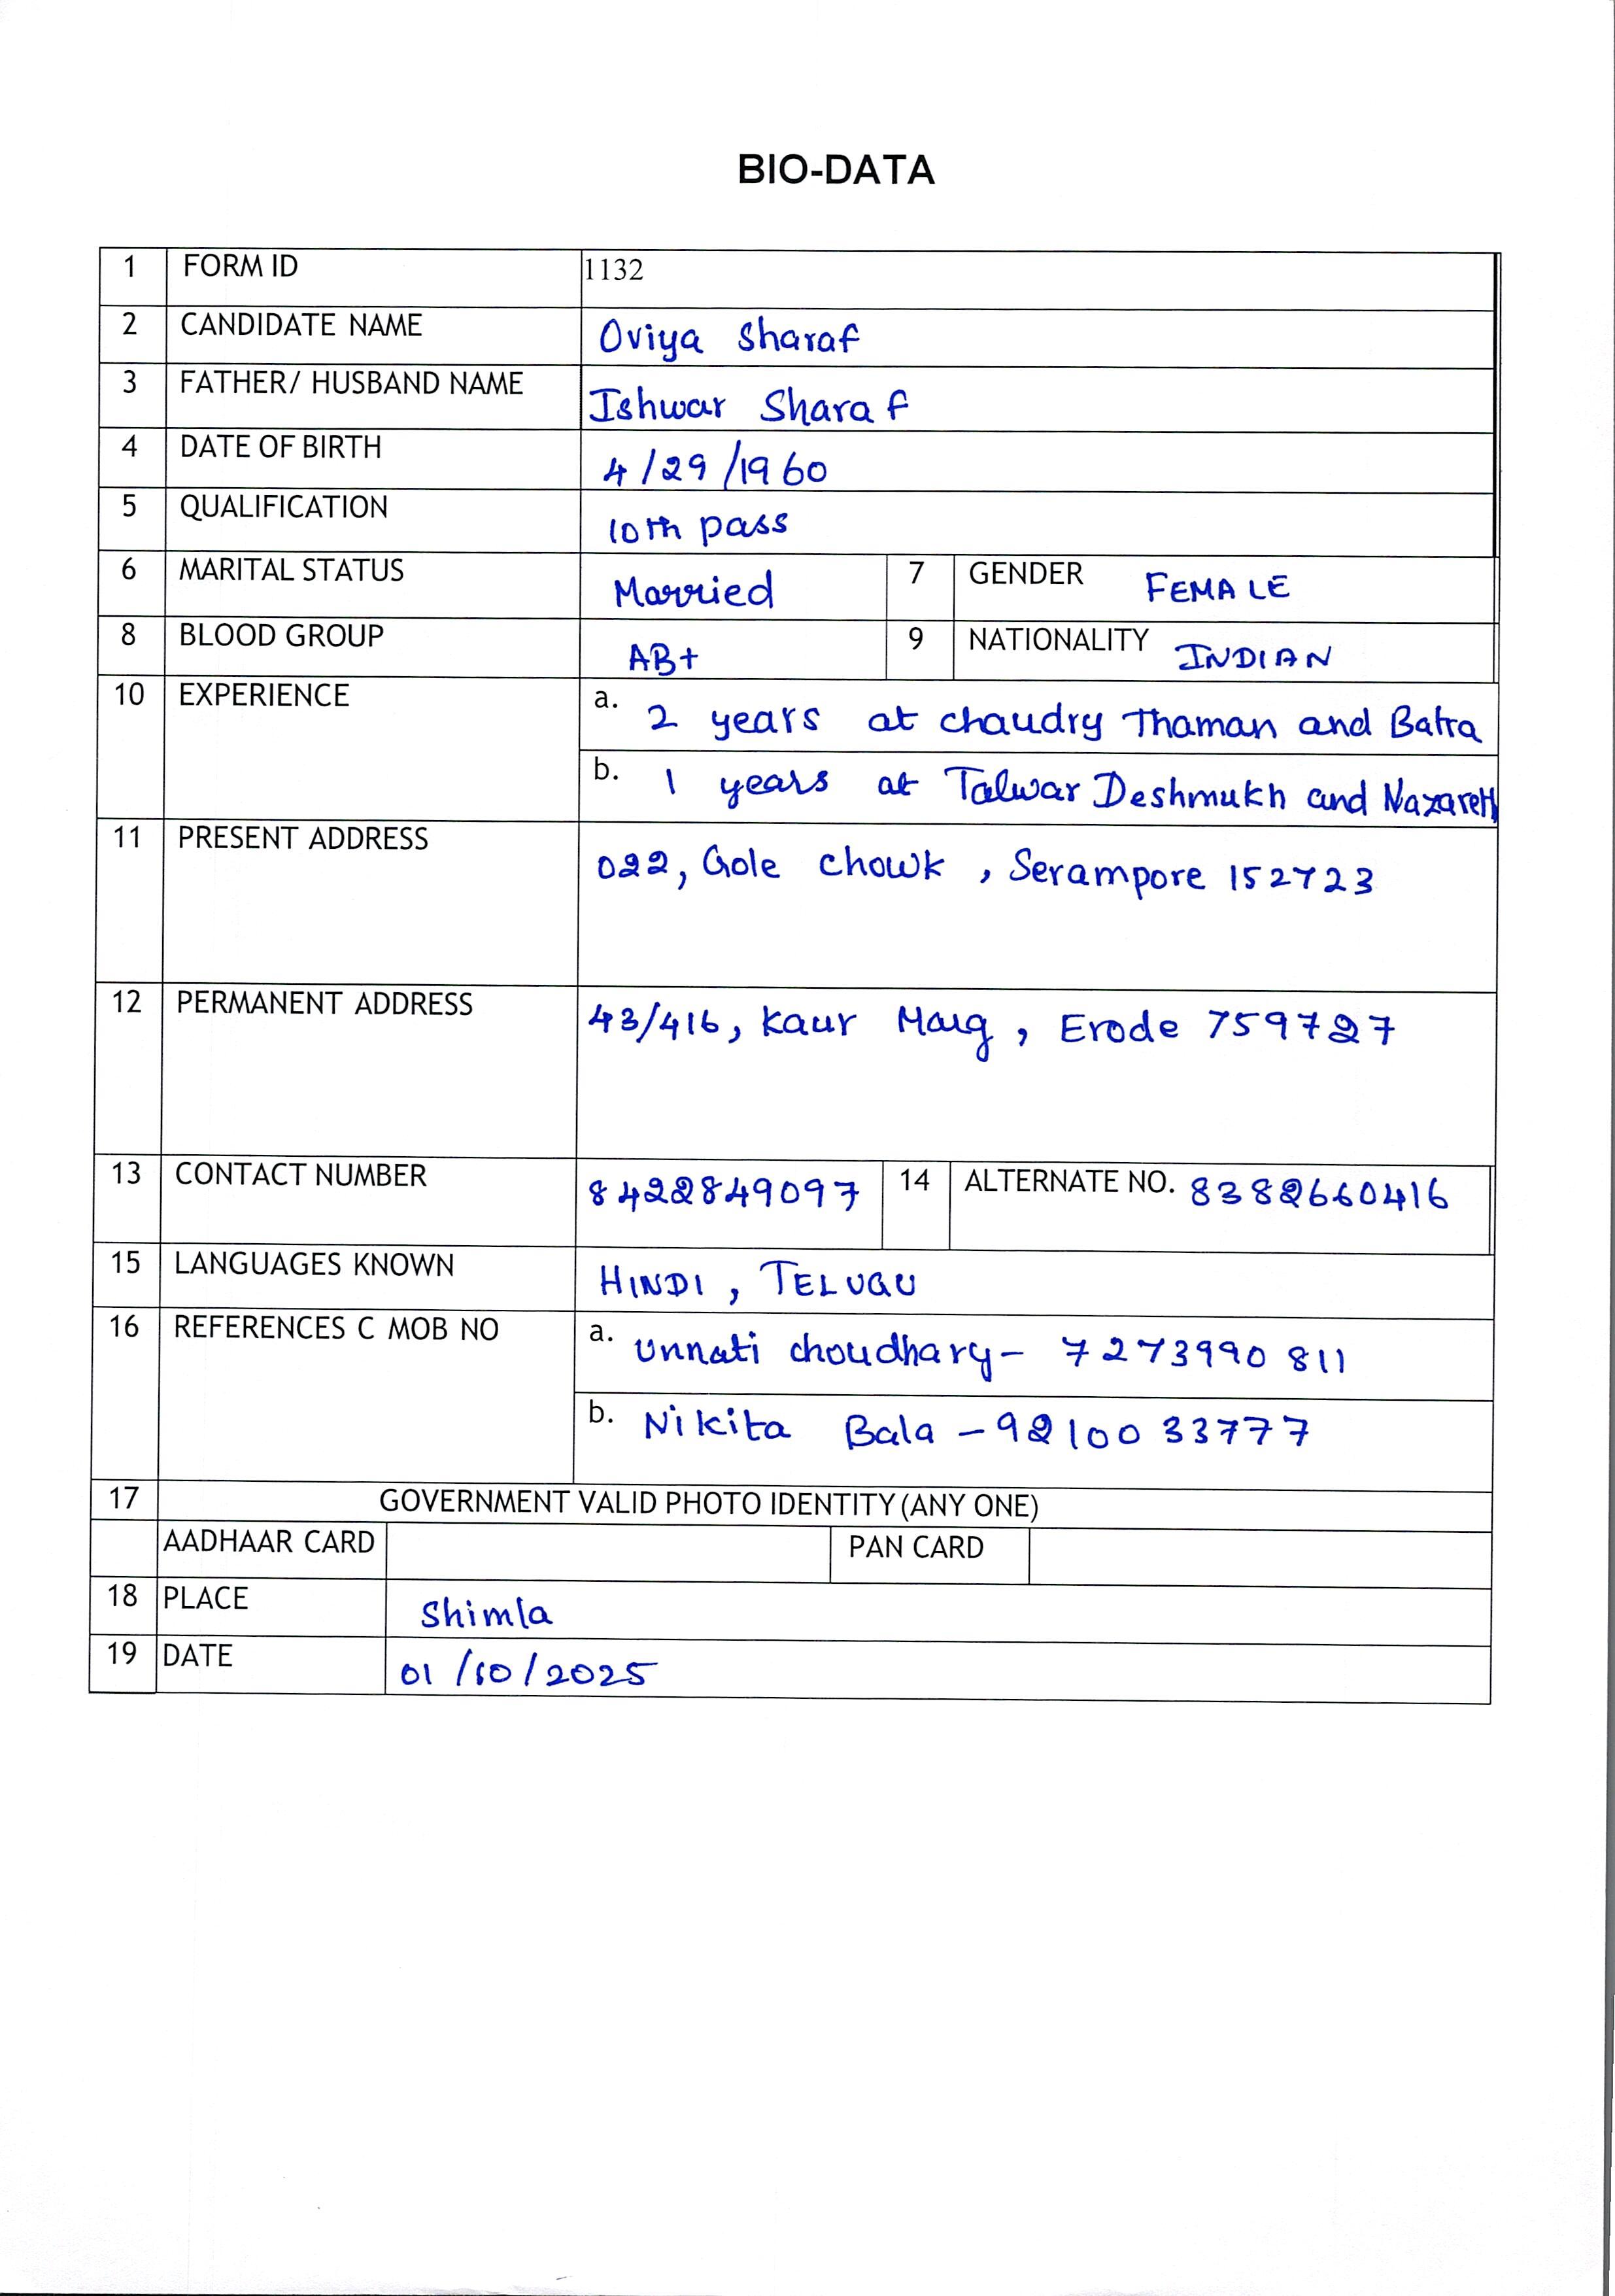 BIO-DATA
1 FORM ID 1132
2 CANDIDATE NAME Oviya Sharaf
3 FATHER/ HUSBAND NAME Ishwar Sharaf
4 DATE OF BIRTH 4/29/1960
5 QUALIFICATION 10th pass
6 MARITAL STATUS Married 7 GENDER FEMALE
8 BLOOD GROUP AB+ 9 NATIONALITY INDIAN
10 EXPERIENCE a. 2 years at chaudry Thaman and Batra
b. 1 years at Talwar Deshmukh and Nazareth
11 PRESENT ADDRESS 022, Gole chowk, Serampore 152723
12 PERMANENT ADDRESS 43/416, Kaur Marg, Erode 759727
13 CONTACT NUMBER 8422849097 14 ALTERNATE NO. 8382660416
15 LANGUAGES KNOWN HINDI, TELUGU
16 REFERENCES C MOB NO a. Unnati choudhary- 7273990811
b. Nikita Bala -9210033777
17 GOVERNMENT VALID PHOTO IDENTITY (ANY ONE)
AADHAAR CARD PAN CARD
18 PLACE Shimla
19 DATE 01/10/2025